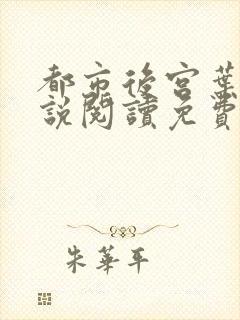 都市後宮葉
說閱讀免費
朱華平